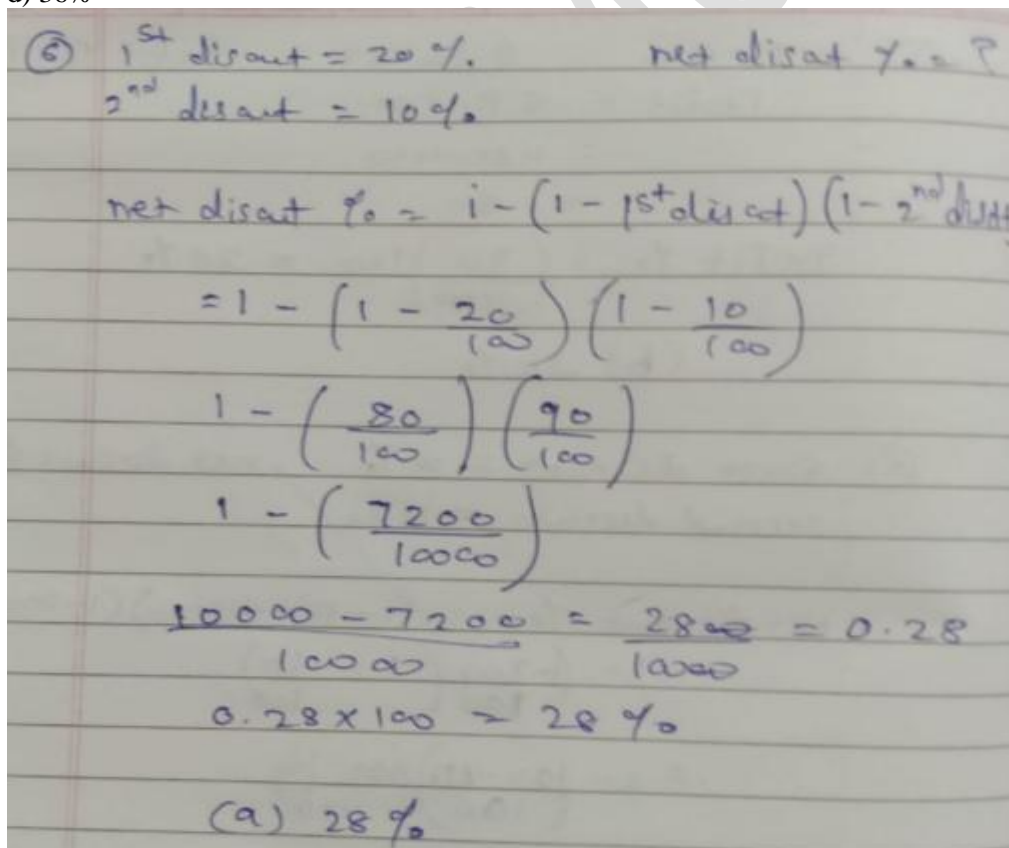 ⑥ 1st disout = 20 %. net disat %. = ?
2nd disaut = 10 %
net disaut % = i - (1 - 1st disct) (1 - 2nd
= 1 - (1 - 20/100) (1 - 10/100)
1 - (80/100) (90/100)
1 - (7200/10000)
10000 - 7200/10000 = 2800/10000 = 0.28
0.28 x 100 = 28 %
(a) 28 %